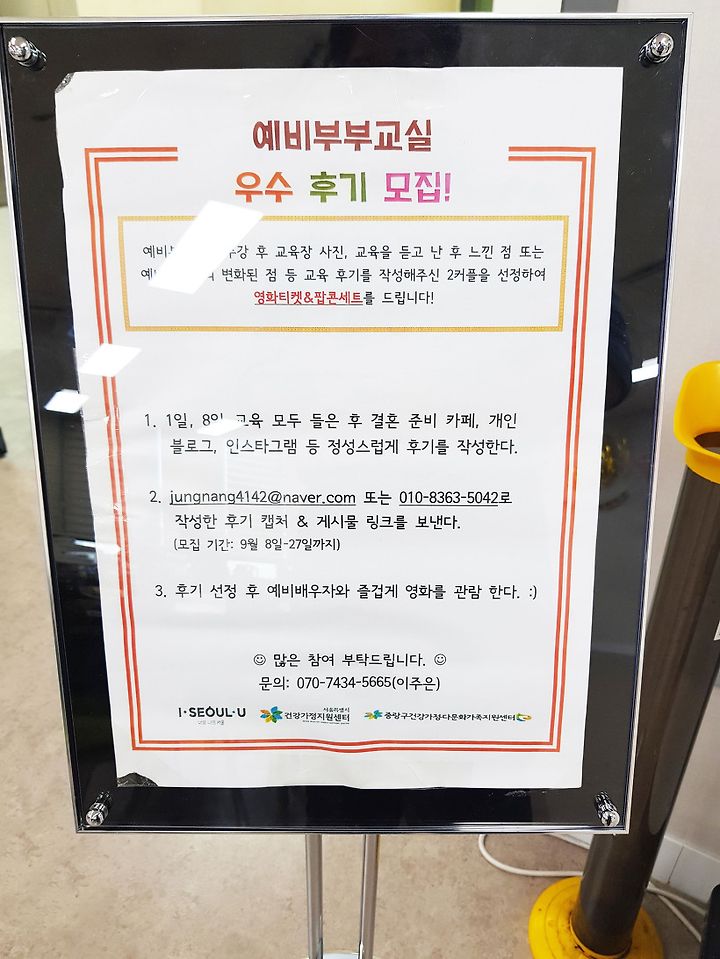 예비부부교실
우수 후기 모집!
후 교육장 사진, 교육을 듣고 난 후 느낀 점 또는
변화된 점 등 교육 후기를 작성해주신 2커플을 선정하여
영화티켓&팝콘세트를 드립니다!
1. 1일, 8일 교육 모두 들은 후 결혼 준비 카페, 개인
블로그, 인스타그램 등 정성스럽게 후기를 작성한다.
2. jungnang4142@naver.com 또는 010-8363-5042로
작성한 후기 캡처 & 게시물 링크를 보낸다.
(모집 기간: 9월 8일-27일까지)
3. 후기 선정 후 예비배우자와 즐겁게 영화를 관람 한다. :)
☺ 많은 참여 부탁드립니다. ☺
문의: 070-7434-5665(이주은)
I·SEOUL·U
너와 나의 서울
서울특별시
건강가정지원센터
중랑구건강가정·다문화가족지원센터